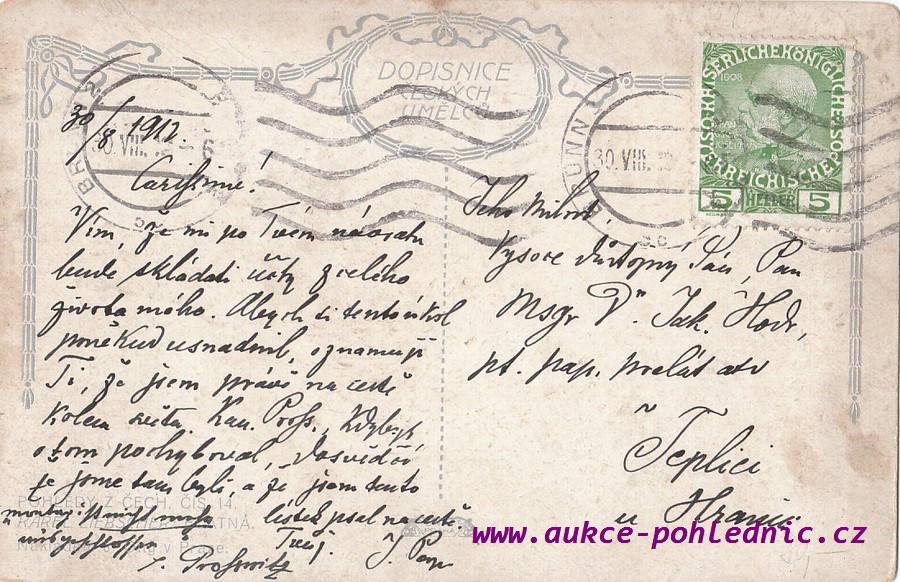 DOPISNICE
ČESKÝCH
UMĚLCŮ
KAISERLICHE KÖNIGLICHE ÖSTERREICHISCHE POST
1908
5 HELLER 5
30. VIII.
30. VIII.
30/8 1912
Carissime!
Vím, že mi po Tvém návratu
bude skládati účty z celého
života mého. Abych si tento úkol
poněkud usnadnil, oznamuji
Ti, že jsem právě na cestě
kolem světa. Kan. Pross., kdybys
o tom pochyboval, dosvědčí
že jsme tam byli, a že jsem tento
lístek psal na cestě.
Tvůj
Jeho Milost,
Vysoce důstojný Pán, Pan
Msgr Dr. Jak. Hodr,
pt. pap. prelát atd
Teplici
u Hranic
POHLEDY Z ČECH. ČÍS. 14.
KAREL LIEBSCHER:
v Praze.
www.aukce-pohlednic.cz